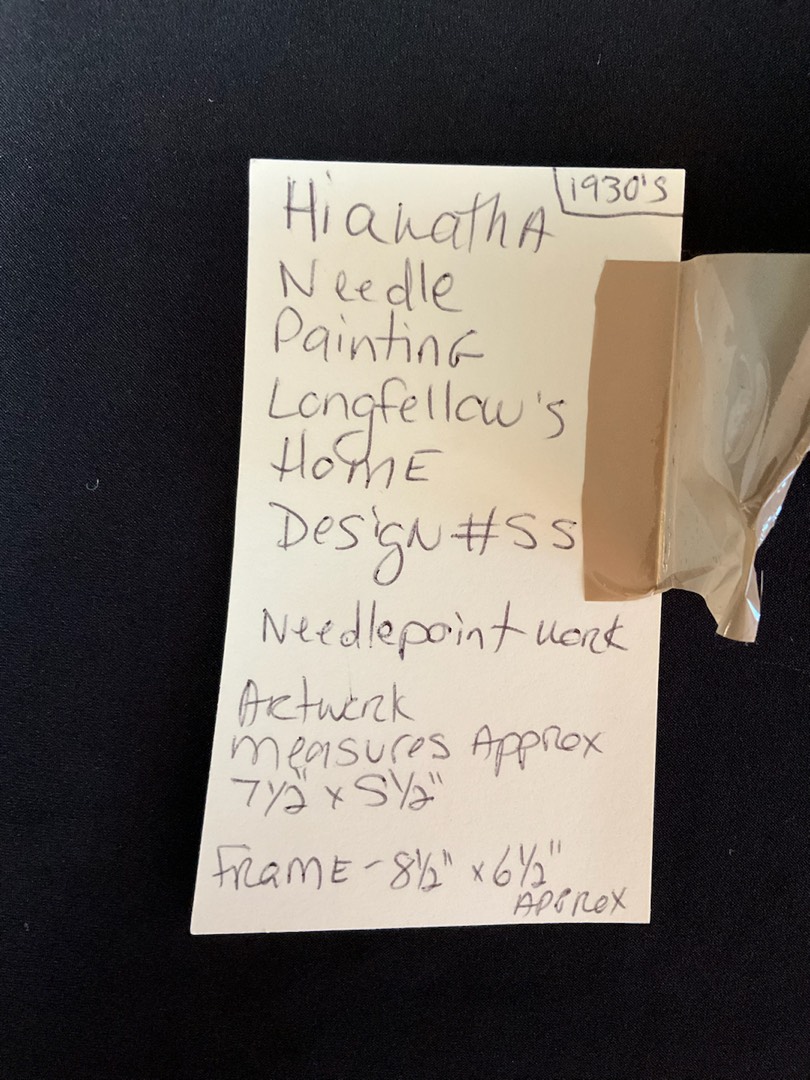 1930's
HiawathA
Needle
PaintinG
Longfellow's
HomE
DesigN #55
Needlepoint work
Artwork
measures Approx
7½" x 5½"
FRamE - 8½" x 6½"
APPROX